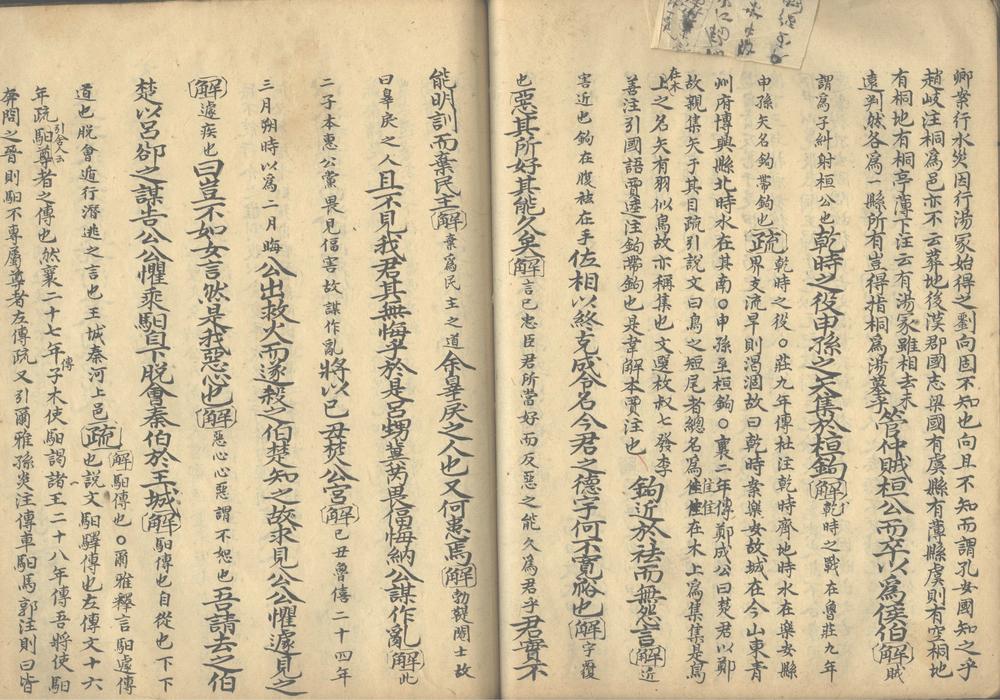 卿案行水災因行湯冢始得之劉向固不知也向且不知而謂孔安國知之乎
趙岐注桐爲邑亦不云葬地後漢郡國志梁國有虞縣有薄縣虞則有空桐地
有桐地有桐亭薄下注云有湯冢雖相去未
遠判然各爲一縣所有豈得指桐爲湯墓乎管仲賊桓公而卒以爲侯伯解賊
謂爲子糾射桓公也乾時之役申孫之矢集於桓鉤解乾時之戰在魯莊九年
申孫矢名鉤帶鉤也疏乾時之役○莊九年傳杜注乾時齊地時水在樂安縣
界支流旱則渴涸故曰乾時案樂安故城在今山東青
州府博興縣北時水在其南○申孫至桓鉤○襄二年傳鄭成公曰楚君以鄭
故親集矢于其目疏引說文曰鳥之短尾者總名爲隹隹在木上爲集集是鳥
在木
上之名矢有羽似鳥故亦稱集也文選枚叔七發李
善注引國語賈逵注鉤帶鉤也是韋解本賈注也鉤近於袪而無怨言解近
害近也鉤在腹袪在手佐相以終克成令名今君之德宇何不寬裕也解宇覆
也惡其所好其能久矣解言己忠臣君所當好而反惡之能久爲君乎君實不
能明訓而棄民主解棄爲民主之道余辠戾之人也又何患焉解勃鞮閹士故
曰辠戾之人且不見我君其無悔乎於是呂甥冀芮畏偪悔納公謀作亂解此
二子本惠公黨畏見偪害故謀作亂將以己丑焚公宮解己丑魯僖二十四年
三月朔時以爲二月晦公出救火而遂殺之伯楚知之故求見公公懼遽見之
解遽疾也曰豈不如女言然是我惡心也解惡心心惡謂不恕也吾請去之伯
楚以呂郤之謀告公公懼乘馹自下脫會秦伯於王城解馹傳也自從也下下
道也脫會遁行潛逃之言也王城秦河上邑疏解馹傳也○爾雅釋言馹遽傳
也說文馹驛傳也左傳文十六
年疏馹尊者之傳也然襄二十七年傳子木使馹謁諸王二十八年傳吾將使馹
引舍人云
奔問之晉則馹不專屬尊者左傳疏又引爾雅孫炎注傳車馹馬郭注則曰皆